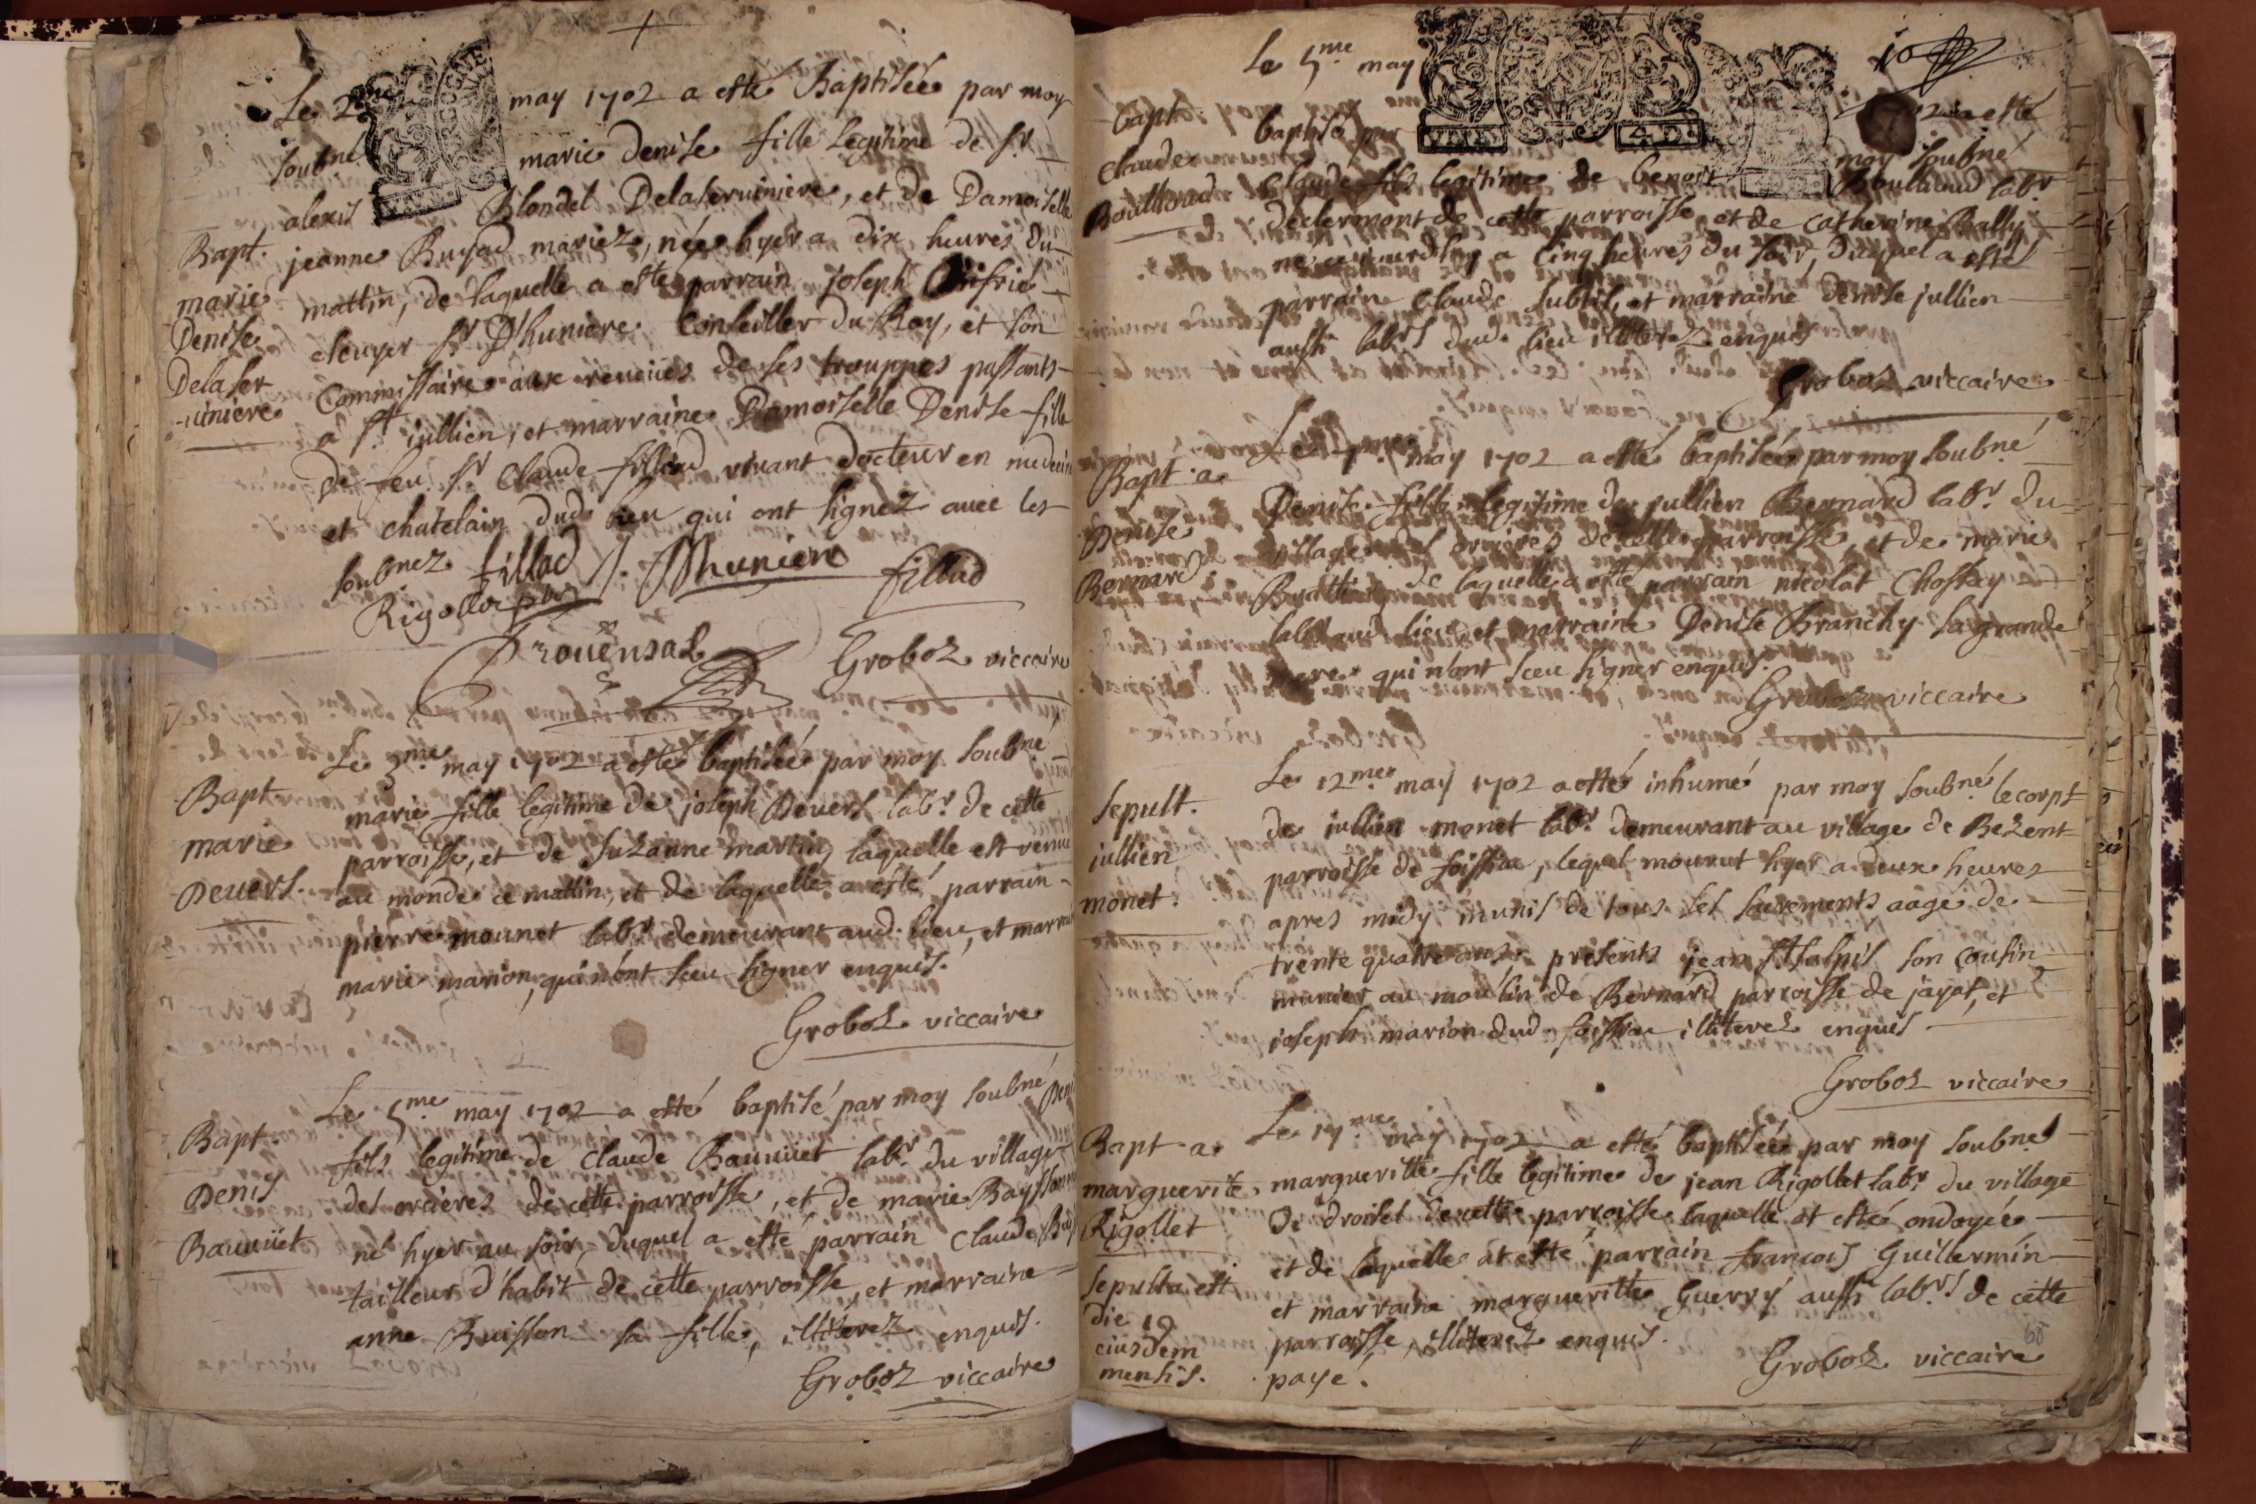 Le 2me may 1702 a esté Baptisée par moy
soubné marie denise fille legitime de sr
alexis Blondel Delaseruiniere, et de Damoiselle
Bapt. jeanne Buyad mariez, née hyer a dix heures du
marie mattin, de laquelle a esté parrain joseph
Denise escuyer sr Dhuniere Conseiller du Roy, et son
Delaser Commissaire aux reueües de ses trouppes passants
-uiniere a st jullien, et marraine Damoiselle Denise fille
de feu sr Claude filliad viuant docteur en medecin
et chatelain dud. lieu qui ont signez auec les
soubnez fillad J. Dhuniere fillad
Rigollet pbr
Prouënsal Groboz viccaire
Le 3me may 1702 a esté baptisée par moy soubné
Bapt marie fille legitime de joseph Deuers labr. de cette
marie parroisse, et de Suzanne martin, laquelle est venue
Deuers. au monde ce mattin, et de laquelle a esté parrain
pierre mounet labr. demeurant aud. lieu, et marr
marie marion, qui n'ont sceu signer enquis.
Groboz viccaire
Le 5me may 1702 a esté baptisé par moy soubné Den
Bapt fils legitime de claude Bauuüet labr. du village
Denis des orcieres de cette parroisse, et de marie
Bauuüet né hyer au soir, duquel a esté parrain claude
tailleur d'habit de cette parroisse, et marraine
anne Buisson sa fille, illiterez enquis.
Groboz viccaire
10
Le 5me may 1702 a esté
bapt baptisé par moy soubné
claude claude fils legitime de benoit Boullioud labr.
Boullioud declermont de cette parroisse, et de catherine Bally
né ce jourdhuy a Cinq heures du soir, Duquel a esté
parrain Claude subtil, et marraine denise jullien
aussi labrs dud. lieu illiterez enquis
Groboz viccaire
Le may 1702 a esté baptisée par moy soubné
Bapt. a. Denise fille legitime de jullien Bernard labr. du
Denise village des orcieres de cette parroisse, et de marie
Bernard de laquelle a esté parrain nicolas Chossey
labr. aud. lieu et marraine Denise Branchy sa grande
mere qui n'ont sceu signer enquis.
Groboz viccaire
Le 12me may 1702 a esté inhumé par moy soubné le corps
sepult. de jullien monet labr. demeurant au village de Bezent
jullien parroisse de foissia, lequel mourut hyer a deux heures
monet. apres midy munis de tous ses sacrements aagé de
trente quatre ans presents jean st sulpis son cousin
munier au moulin de Bernard parroisse de jayat, et
joseph marion dud. foissia illiterez enquis
Groboz viccaire
Le 17me may 1702 a esté baptisée par moy soubné
Bapt a. marguerite fille legitime de jean Rigollet labr. du village
marguerite de droiset de cette parroisse laquelle at estée ondoyée
Rigollet et de laquelle at esté parrain francois Guillermin
sepulta est et marraine marguerite Guerry aussi labrs de cette
die 19 parroisse, illiterez enquis.
eiusdem Groboz viccaire
mensis. paye.
68